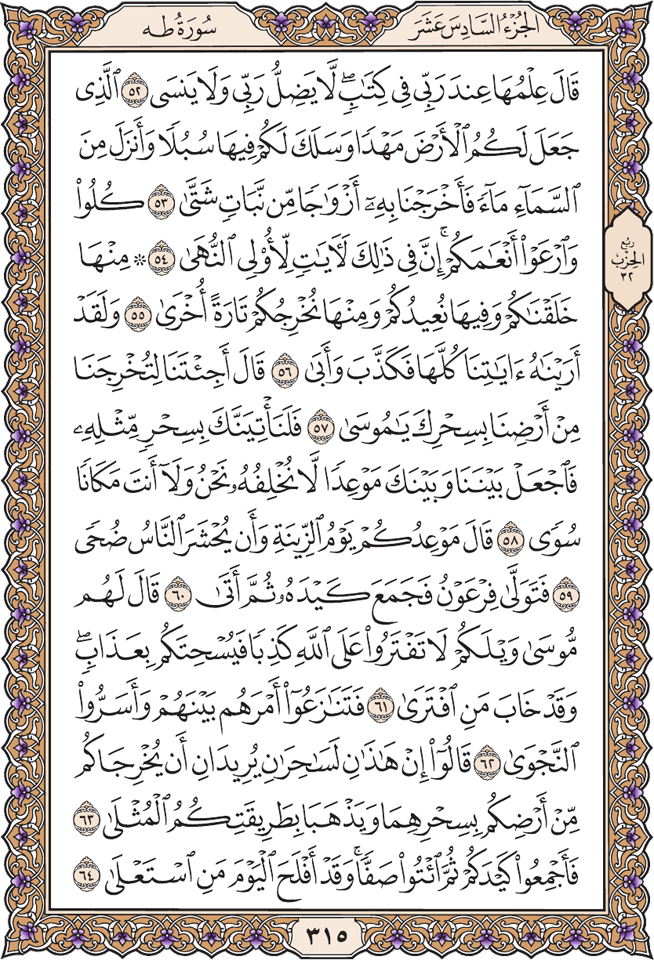 سُورَةُ طه
الجُزْءُ السَّادِسَ عَشَرَ
قَالَ عِلْمُهَا عِندَ رَبِّي فِي كِتَٰبٍۖ لَّا يَضِلُّ رَبِّي وَلَا يَنسَى ٥٢ ٱلَّذِي
جَعَلَ لَكُمُ ٱلْأَرْضَ مَهْدًا وَسَلَكَ لَكُمْ فِيهَا سُبُلًا وَأَنزَلَ مِنَ
ٱلسَّمَآءِ مَآءً فَأَخْرَجْنَا بِهِۦٓ أَزْوَٰجًا مِّن نَّبَاتٍ شَتَّىٰ ٥٣ كُلُوا۟
وَٱرْعَوْا۟ أَنْعَٰمَكُمْۗ إِنَّ فِي ذَٰلِكَ لَءَايَٰتٍ لِّأُو۟لِي ٱلنُّهَىٰ ٥٤ ۞ مِنْهَا
خَلَقْنَٰكُمْ وَفِيهَا نُعِيدُكُمْ وَمِنْهَا نُخْرِجُكُمْ تَارَةً أُخْرَىٰ ٥٥ وَلَقَدْ
أَرَيْنَٰهُ ءَايَٰتِنَا كُلَّهَا فَكَذَّبَ وَأَبَىٰ ٥٦ قَالَ أَجِئْتَنَا لِتُخْرِجَنَا
مِنْ أَرْضِنَا بِسِحْرِكَ يَٰمُوسَىٰ ٥٧ فَلَنَأْتِيَنَّكَ بِسِحْرٍ مِّثْلِهِۦ
فَٱجْعَلْ بَيْنَنَا وَبَيْنَكَ مَوْعِدًا لَّا نُخْلِفُهُۥ نَحْنُ وَلَآ أَنتَ مَكَانًا
سُوًى ٥٨ قَالَ مَوْعِدُكُمْ يَوْمُ ٱلزِّينَةِ وَأَن يُحْشَرَ ٱلنَّاسُ ضُحًى
٥٩ فَتَوَلَّىٰ فِرْعَوْنُ فَجَمَعَ كَيْدَهُۥ ثُمَّ أَتَىٰ ٦٠ قَالَ لَهُم
مُّوسَىٰ وَيْلَكُمْ لَا تَفْتَرُوا۟ عَلَى ٱللَّهِ كَذِبًا فَيُسْحِتَكُم بِعَذَابٍۖ
وَقَدْ خَابَ مَنِ ٱفْتَرَىٰ ٦١ فَتَنَٰزَعُوٓا۟ أَمْرَهُم بَيْنَهُمْ وَأَسَرُّوا۟
ٱلنَّجْوَىٰ ٦٢ قَالُوٓا۟ إِنْ هَٰذَٰنِ لَسَٰحِرَٰنِ يُرِيدَانِ أَن يُخْرِجَاكُم
مِّنْ أَرْضِكُم بِسِحْرِهِمَا وَيَذْهَبَا بِطَرِيقَتِكُمُ ٱلْمُثْلَىٰ ٦٣
فَأَجْمِعُوا۟ كَيْدَكُمْ ثُمَّ ٱئْتُوا۟ صَفًّاۚ وَقَدْ أَفْلَحَ ٱلْيَوْمَ مَنِ ٱسْتَعْلَىٰ ٦٤
ربع
الحِزْب
٣٢
٣١٥